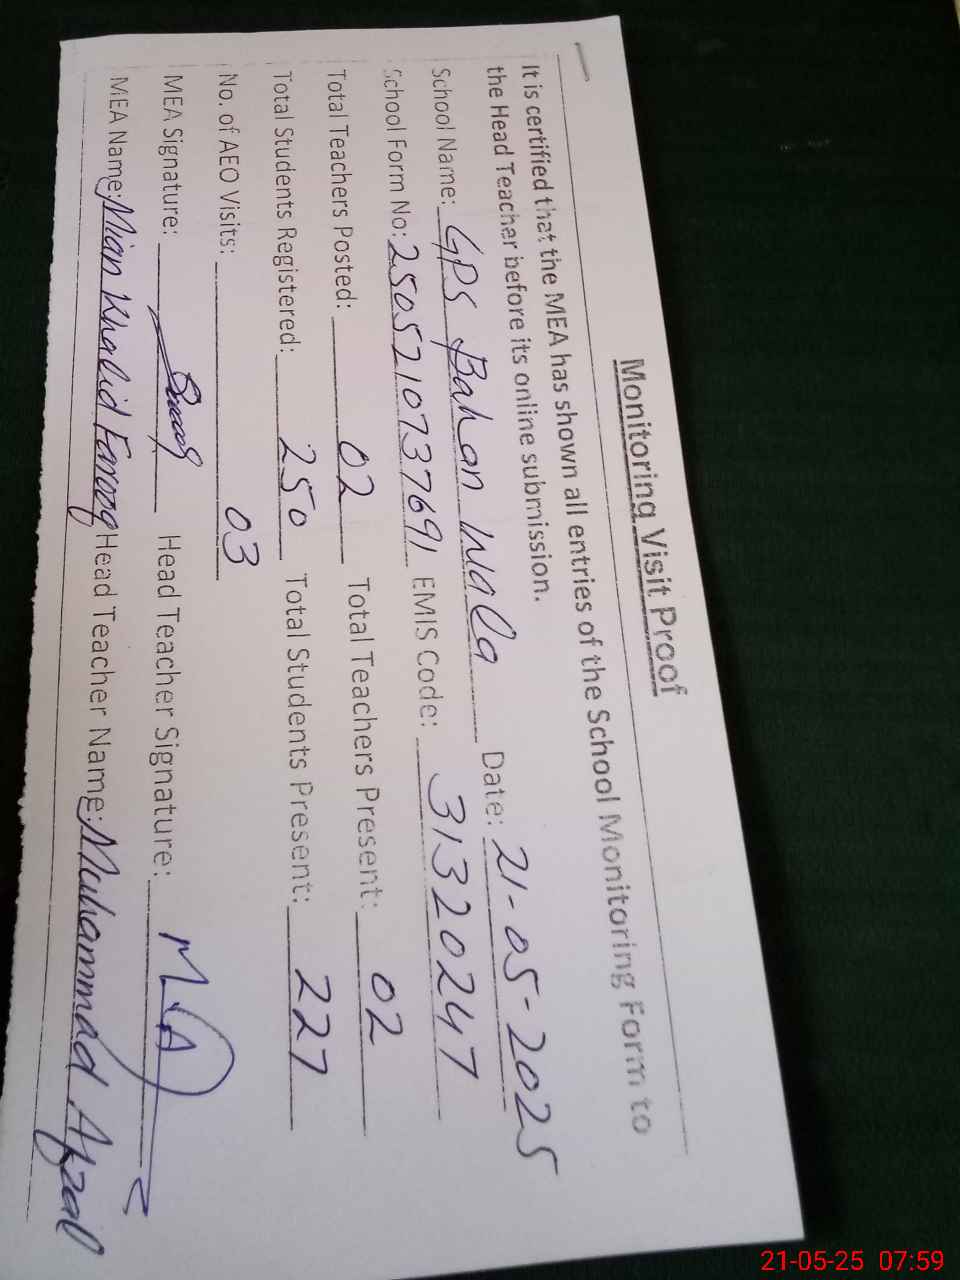 Monitoring Visit Proof
It is certified that the MEA has shown all entries of the School Monitoring Form to
the Head Teacher before its online submission.
School Name: GPS Bahan Wala Date: 21-05-2025
School Form No: 2505210737691 EMIS Code: 31320247
Total Teachers Posted: 02 Total Teachers Present: 02
Total Students Registered: 250 Total Students Present: 227
No. of AEO Visits: 03
MEA Signature: Head Teacher Signature: M.A
MEA Name: Mian Khalid Farooq Head Teacher Name: Muhammad Afzal
21-05-25 07:59